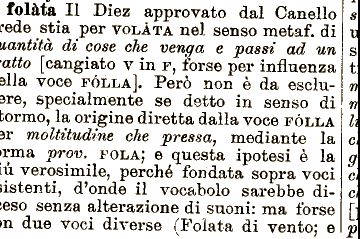 folàta Il Diez approvato dal Canello
rede stia per VOLÀTA nel senso metaf. di
uantità di cose che venga e passi ad un
ratto [cangiato V in F, forse per influenza
ella voce FÓLLA]. Però non è da esclu-
ere, specialmente se detto in senso di
tormo, la origine diretta dalla voce FÓLLA
er moltitudine che pressa, mediante la
orma prov. FOLA; e questa ipotesi è la
iù verosimile, perché fondata sopra voci
sistenti, d'onde il vocabolo sarebbe di-
ceso senza alterazione di suoni: ma forse
on due voci diverse (Folata di vento; e